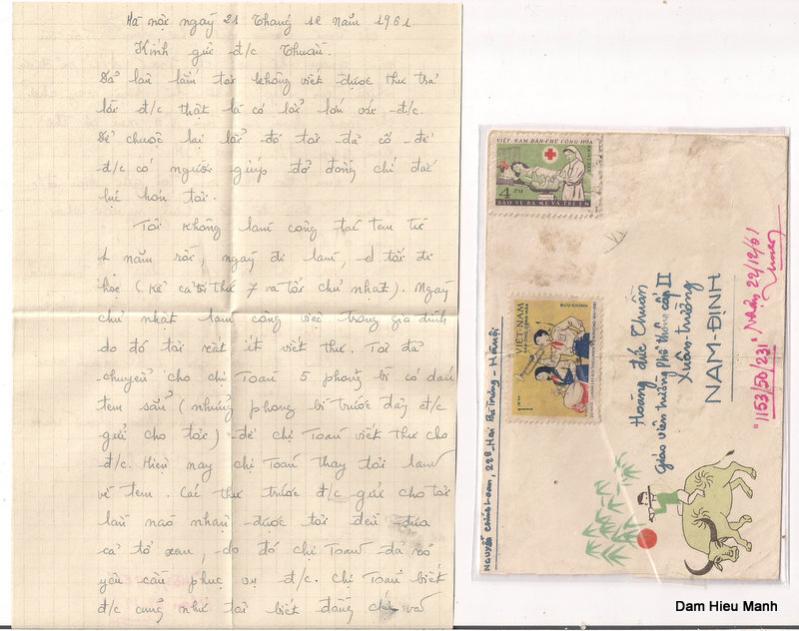 Hà nội ngày 21 Tháng 12 năm 1961
Kính gửi đ/c Thuần.
lần tới không viết được thư trả
lời đ/c thật là có lỗi lớn với đ/c.
Để chuộc lại lỗi đó tôi đã cố để
đ/c có người giúp đỡ đồng chí đắc
lực hơn tôi.
Tôi không làm công tác tem từ
1 năm rồi, ngày đi làm, tối đi
học (kể cả thứ 7 và tối chủ nhật). Ngày
chủ nhật làm công việc trong gia đình
do đó tôi rất ít viết thư. Tôi đã
chuyển cho chị Toàn 5 phong bì có dán
tem sẵn (những phong bì trước đây đ/c
gửi cho tôi) để chị Toàn viết thư cho
đ/c. Hiện nay chị Toàn thay tôi làm
về tem. Các thư trước đ/c gửi cho tôi
lần nào nhận được tôi đều đưa
cả tổ xem, do đó chị Toàn đã có
yêu cầu phục vụ đ/c. Chị Toàn biết
đ/c cũng như tôi biết đồng chí và
VIỆT-NAM DÂN-CHỦ CỘNG-HÒA
4 XU
BẢO VỆ BÀ MẸ VÀ TRẺ EM
BƯU CHÍNH
VIỆT-NAM
DÂN CHỦ CỘNG HÒA
1 XU
Nguyễn Chính Lam, 228 Hai Bà Trưng - Hà nội
Hoàng Đức Thuần
Giáo viên trường Phổ thông cấp II
Xuân-trường
NAM-ĐỊNH
"1153/50/231" Nhận 22/12/61
Dam Hieu Manh